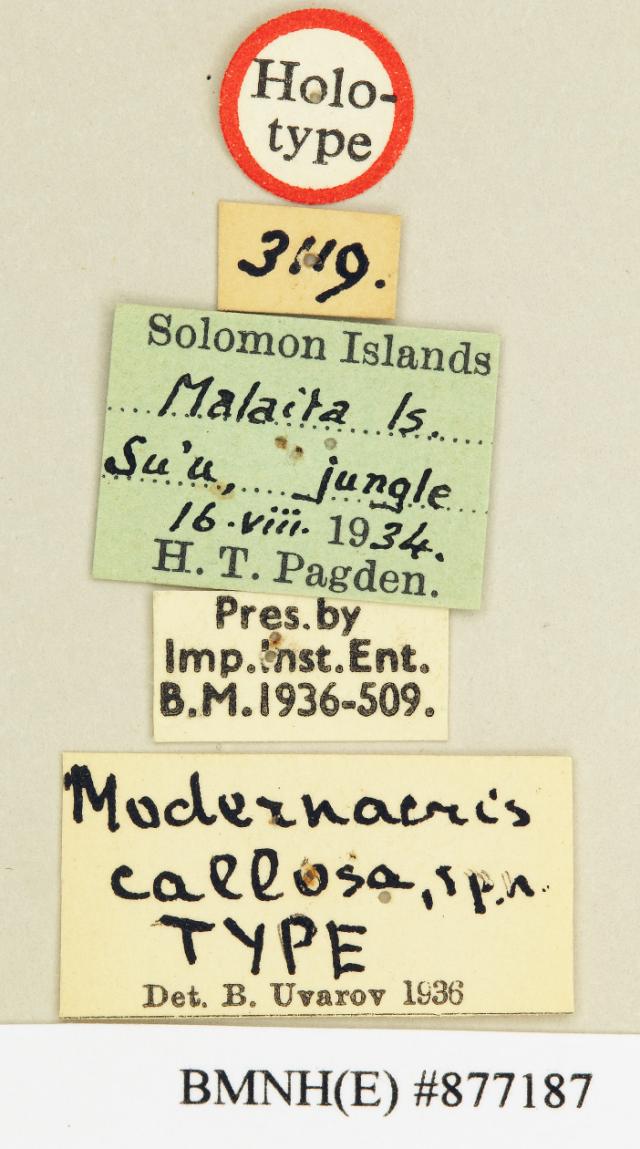 Holo-
type
3119.
Solomon Islands
Malaita Is.
Su'u, jungle
16.viii. 1934.
H. T. Pagden.
Pres. by
Imp.Inst.Ent.
B.M.1936-509.
Modernacris
callosa, sp.n.
TYPE
Det. B. Uvarov 1936
BMNH(E) #877187